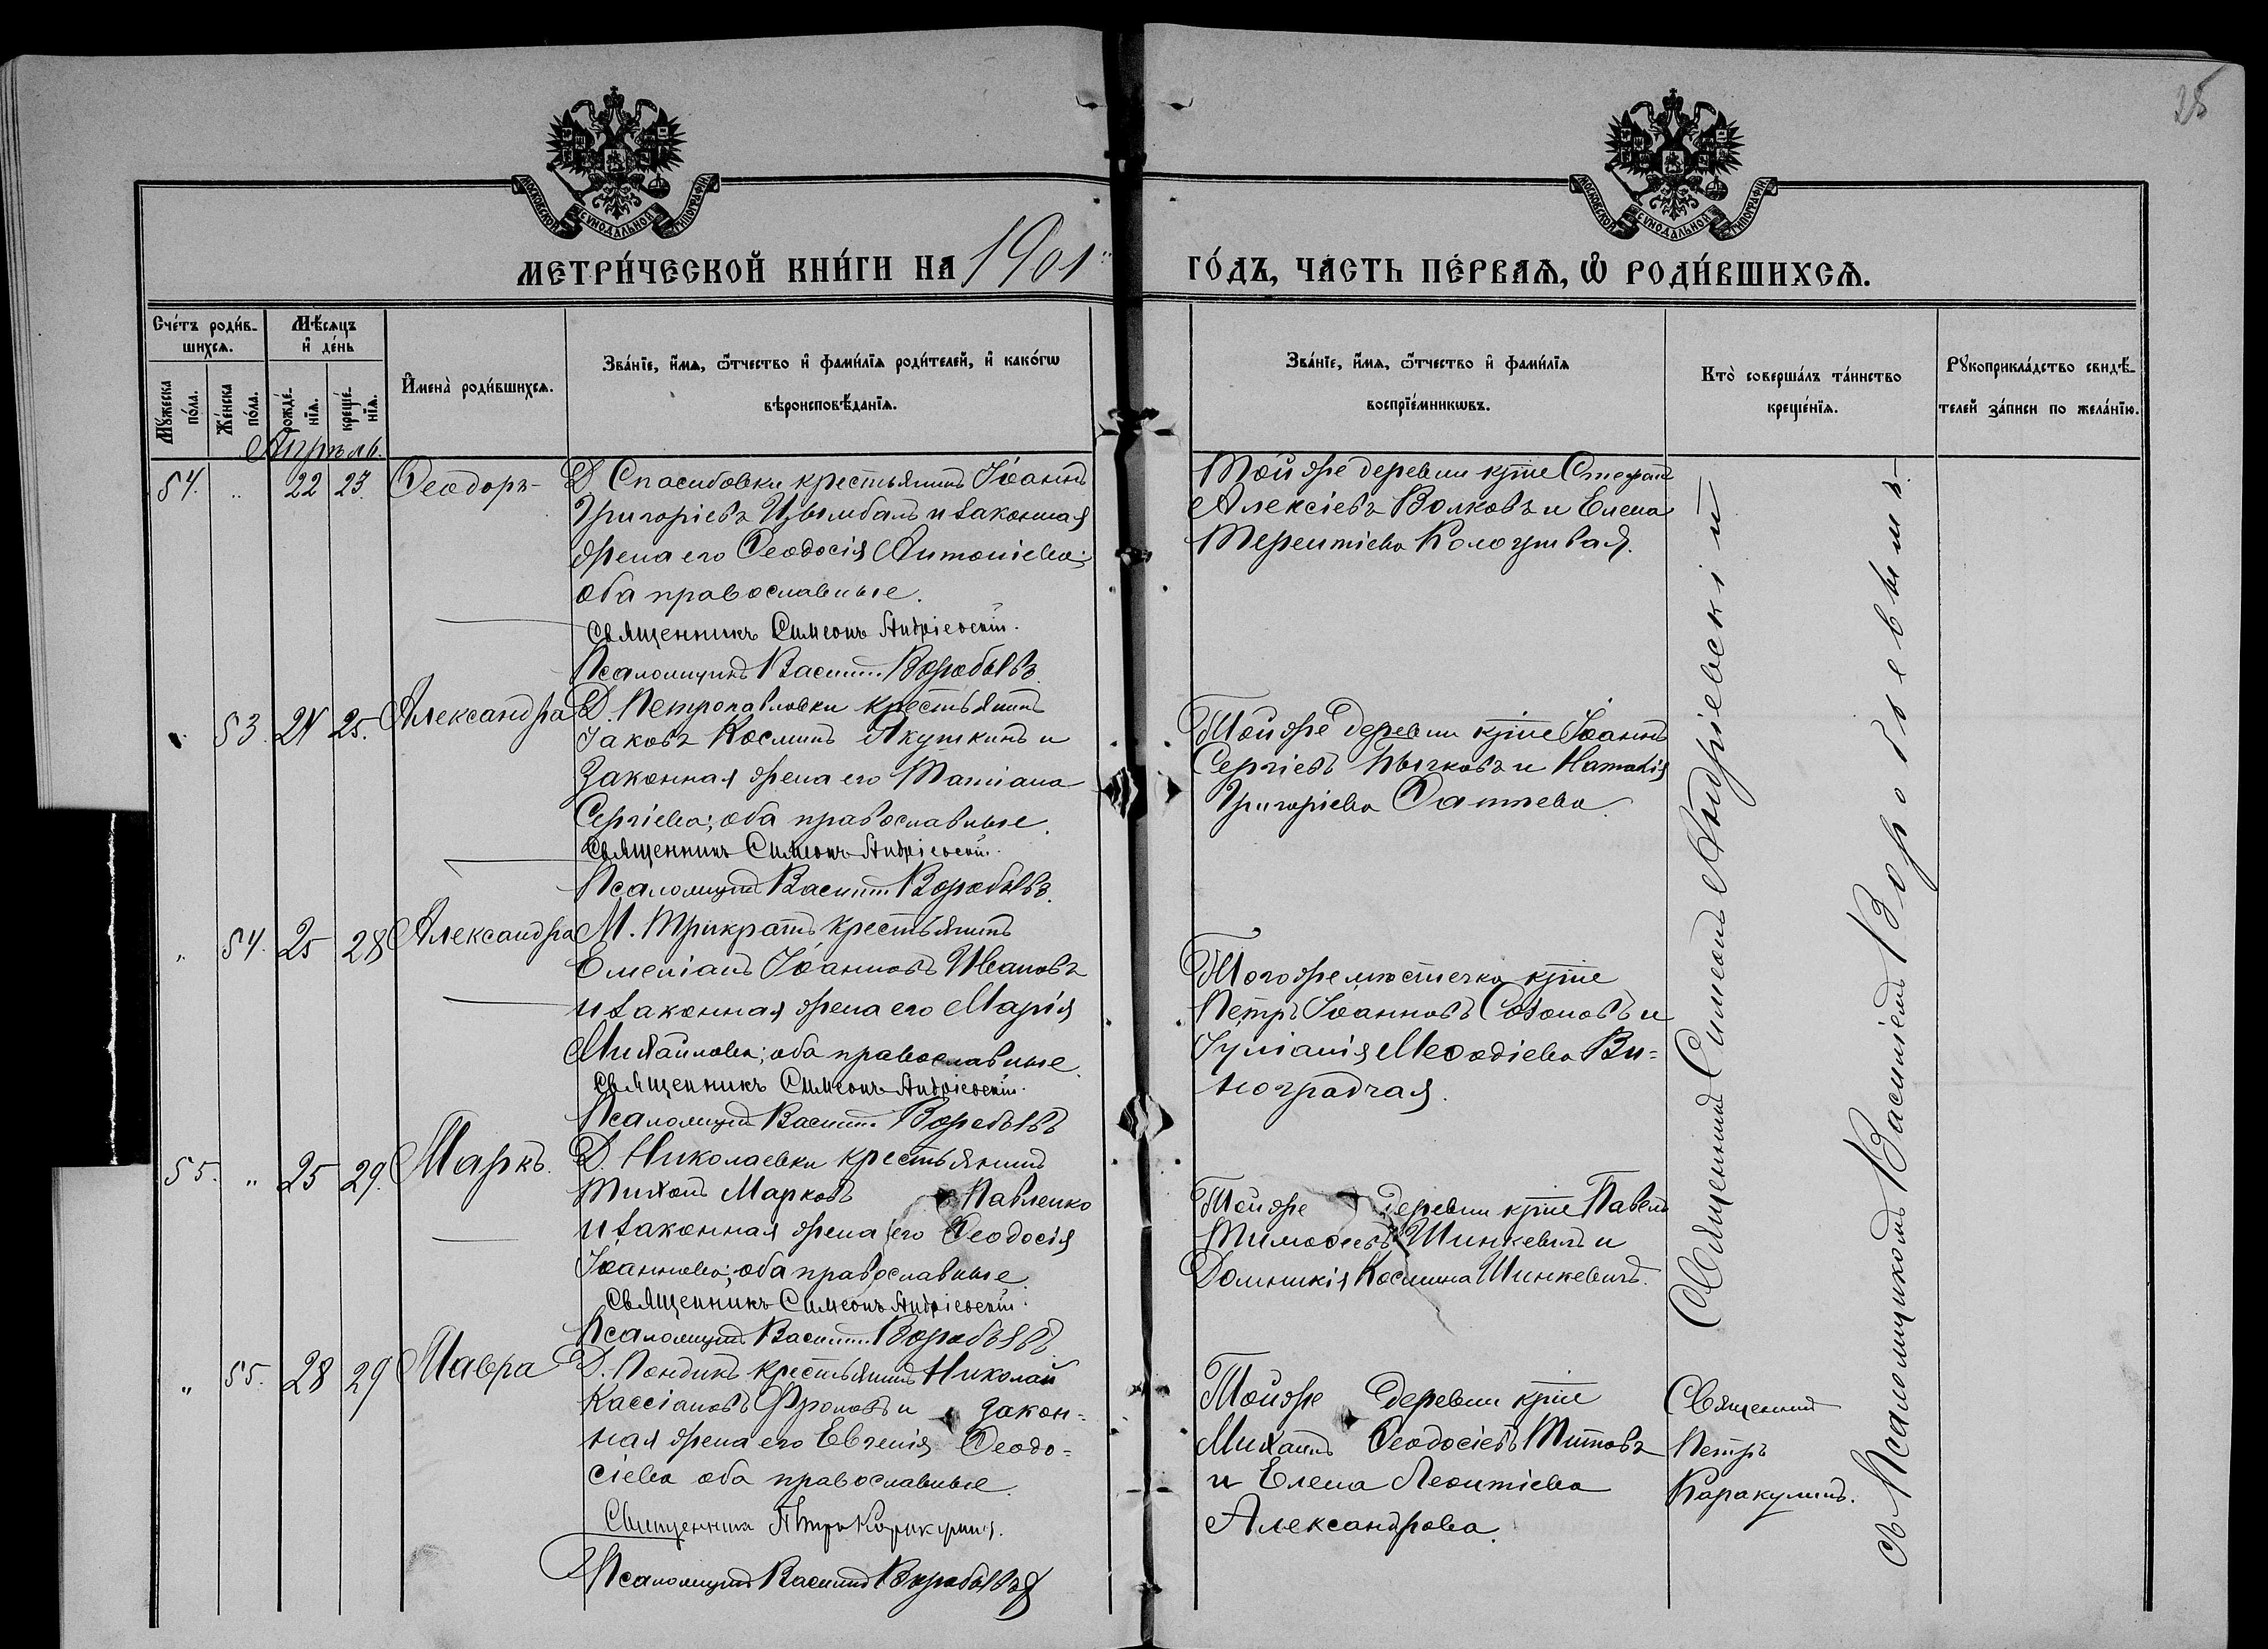 28
МОСКОВСКОЙ СѴНОДАЛЬНОЙ ТИПОГРАФІИ
МОСКОВСКОЙ СѴНОДАЛЬНОЙ ТИПОГРАФІИ
МЕТРИ́ЧЕСКОЙ КНИ́ГИ НА 1901 ГО́ДЪ, ЧА́СТЬ ПЕ́РВАѦ, Ѡ҆ РОДИ́ВШИХСѦ.
Счéтъ роди́в-
шихсѧ.
Мѣ́сѧцъ
и҆ де́нь
Мꙋ́жеска
по́ла.
Же́нска
по́ла.
рожде́-
нїѧ.
креще́-
нїѧ.
И҆мена̀ роди́вшихсѧ.
Зва́нїе, и҆́мѧ, ѻ҆́тчество и҆ фами́лїѧ роди́телей, и҆ како́гѡ
вѣроисповѣ́данїѧ.
Зва́нїе, и҆́мѧ, ѻ҆́тчество и҆ фами́лїѧ
воспрїе́мникѡвъ.
Кто̀ соверша́лъ та́инство
креще́нїѧ.
Рꙋкоприкла́дство свидѣ́-
телей за́писи по жела́нїю.
Апрѣль.
54. „ 22 23. Ѳеодоръ
Д. Спасибовки крестьянинъ Іоаннъ
Григоріевъ Цымбалъ и законная
жена его Ѳеодосія Антоніева;
оба православные.
Священникъ Симеонъ Андріевскій.
Псаломщикъ Василій Воробьевъ.
Той же деревни кртне Стефанъ
Алексіевъ Волковъ и Елена
Терентіева
„ 53. 24 25. Александра
Д. Петропавловки крестьянинъ
Іаковъ Косминъ Якушкинъ и
законная жена его Татіана
Сергіева; оба православные.
Священникъ Симеонъ Андріевскій.
Псаломщикъ Василій Воробьевъ.
Той же деревни кртне Іоаннъ
Сергіевъ Бычковъ и Наталія
Григоріева
„ 54. 25 28 Александра
М. Трикратъ крестьянинъ
Емеліанъ Іоанновъ Ивановъ
и законная жена его Марія
Михайлова; оба православные.
Священникъ Симеонъ Андріевскій.
Псаломщикъ Василій Воробьевъ
Того же мѣстечка кртне
Петръ Іоанновъ Созоновъ и
Іуліанія Меѳодіева Ви-
ноградчая.
55. „ 25 29. Маркъ.
Д. Николаевки крестьянинъ
Тихонъ Марковъ Павленко
и законная жена его Ѳеодосія
Іоаннова; оба православные.
Священникъ Симеонъ Андріевскій.
Псаломщикъ Василій Воробьевъ.
Той же деревни кртне Павелъ
Тимоѳеевъ Шинкевичъ и
Домникія Космина Шинкевичъ.
„ 55. 28 29 Мавра
Д. Кондинъ крестьянинъ Николай
Кассіановъ Фроловъ и закон-
ная жена его Евгенія Ѳеодо-
сіева оба православные.
Священникъ Петръ Каракулинъ.
Псаломщикъ Василій Воробьевъ
Той же деревни кртне
Михаилъ Ѳеодосіевъ Титовъ
и Елена Леонтіева
Александрова.
Священникъ Симеонъ Андріевскій
Священникъ
Петръ
Каракулинъ.
съ Псаломщикомъ Василіемъ Воробьевымъ.